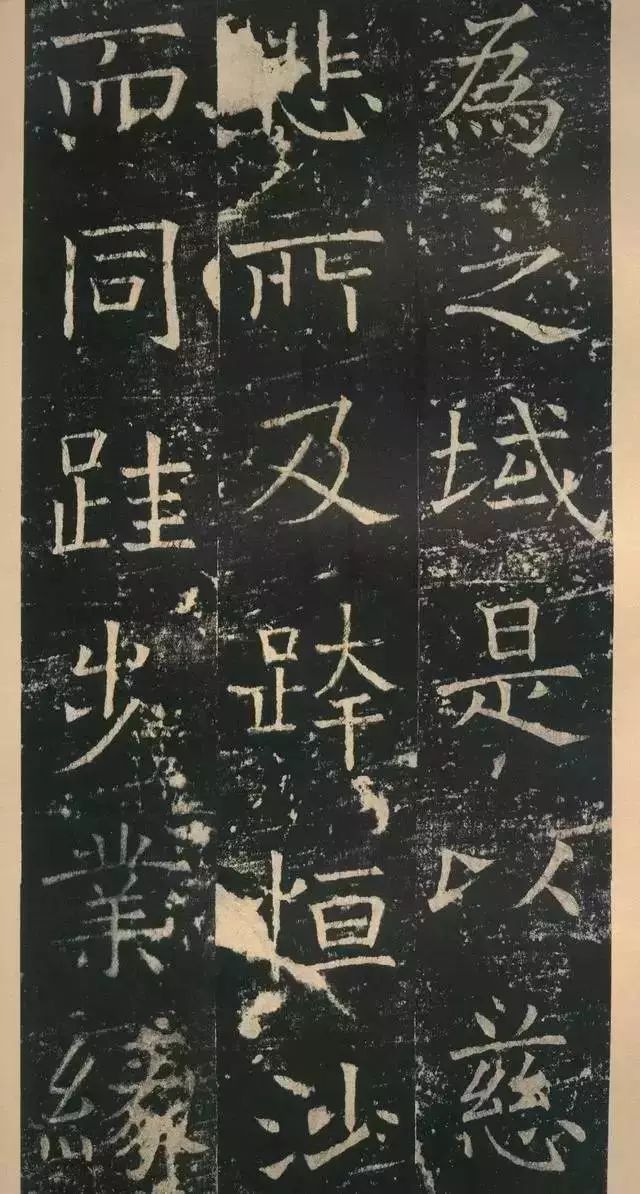 為之域是以慈
悲所及跨恒沙
而同跬步業緣